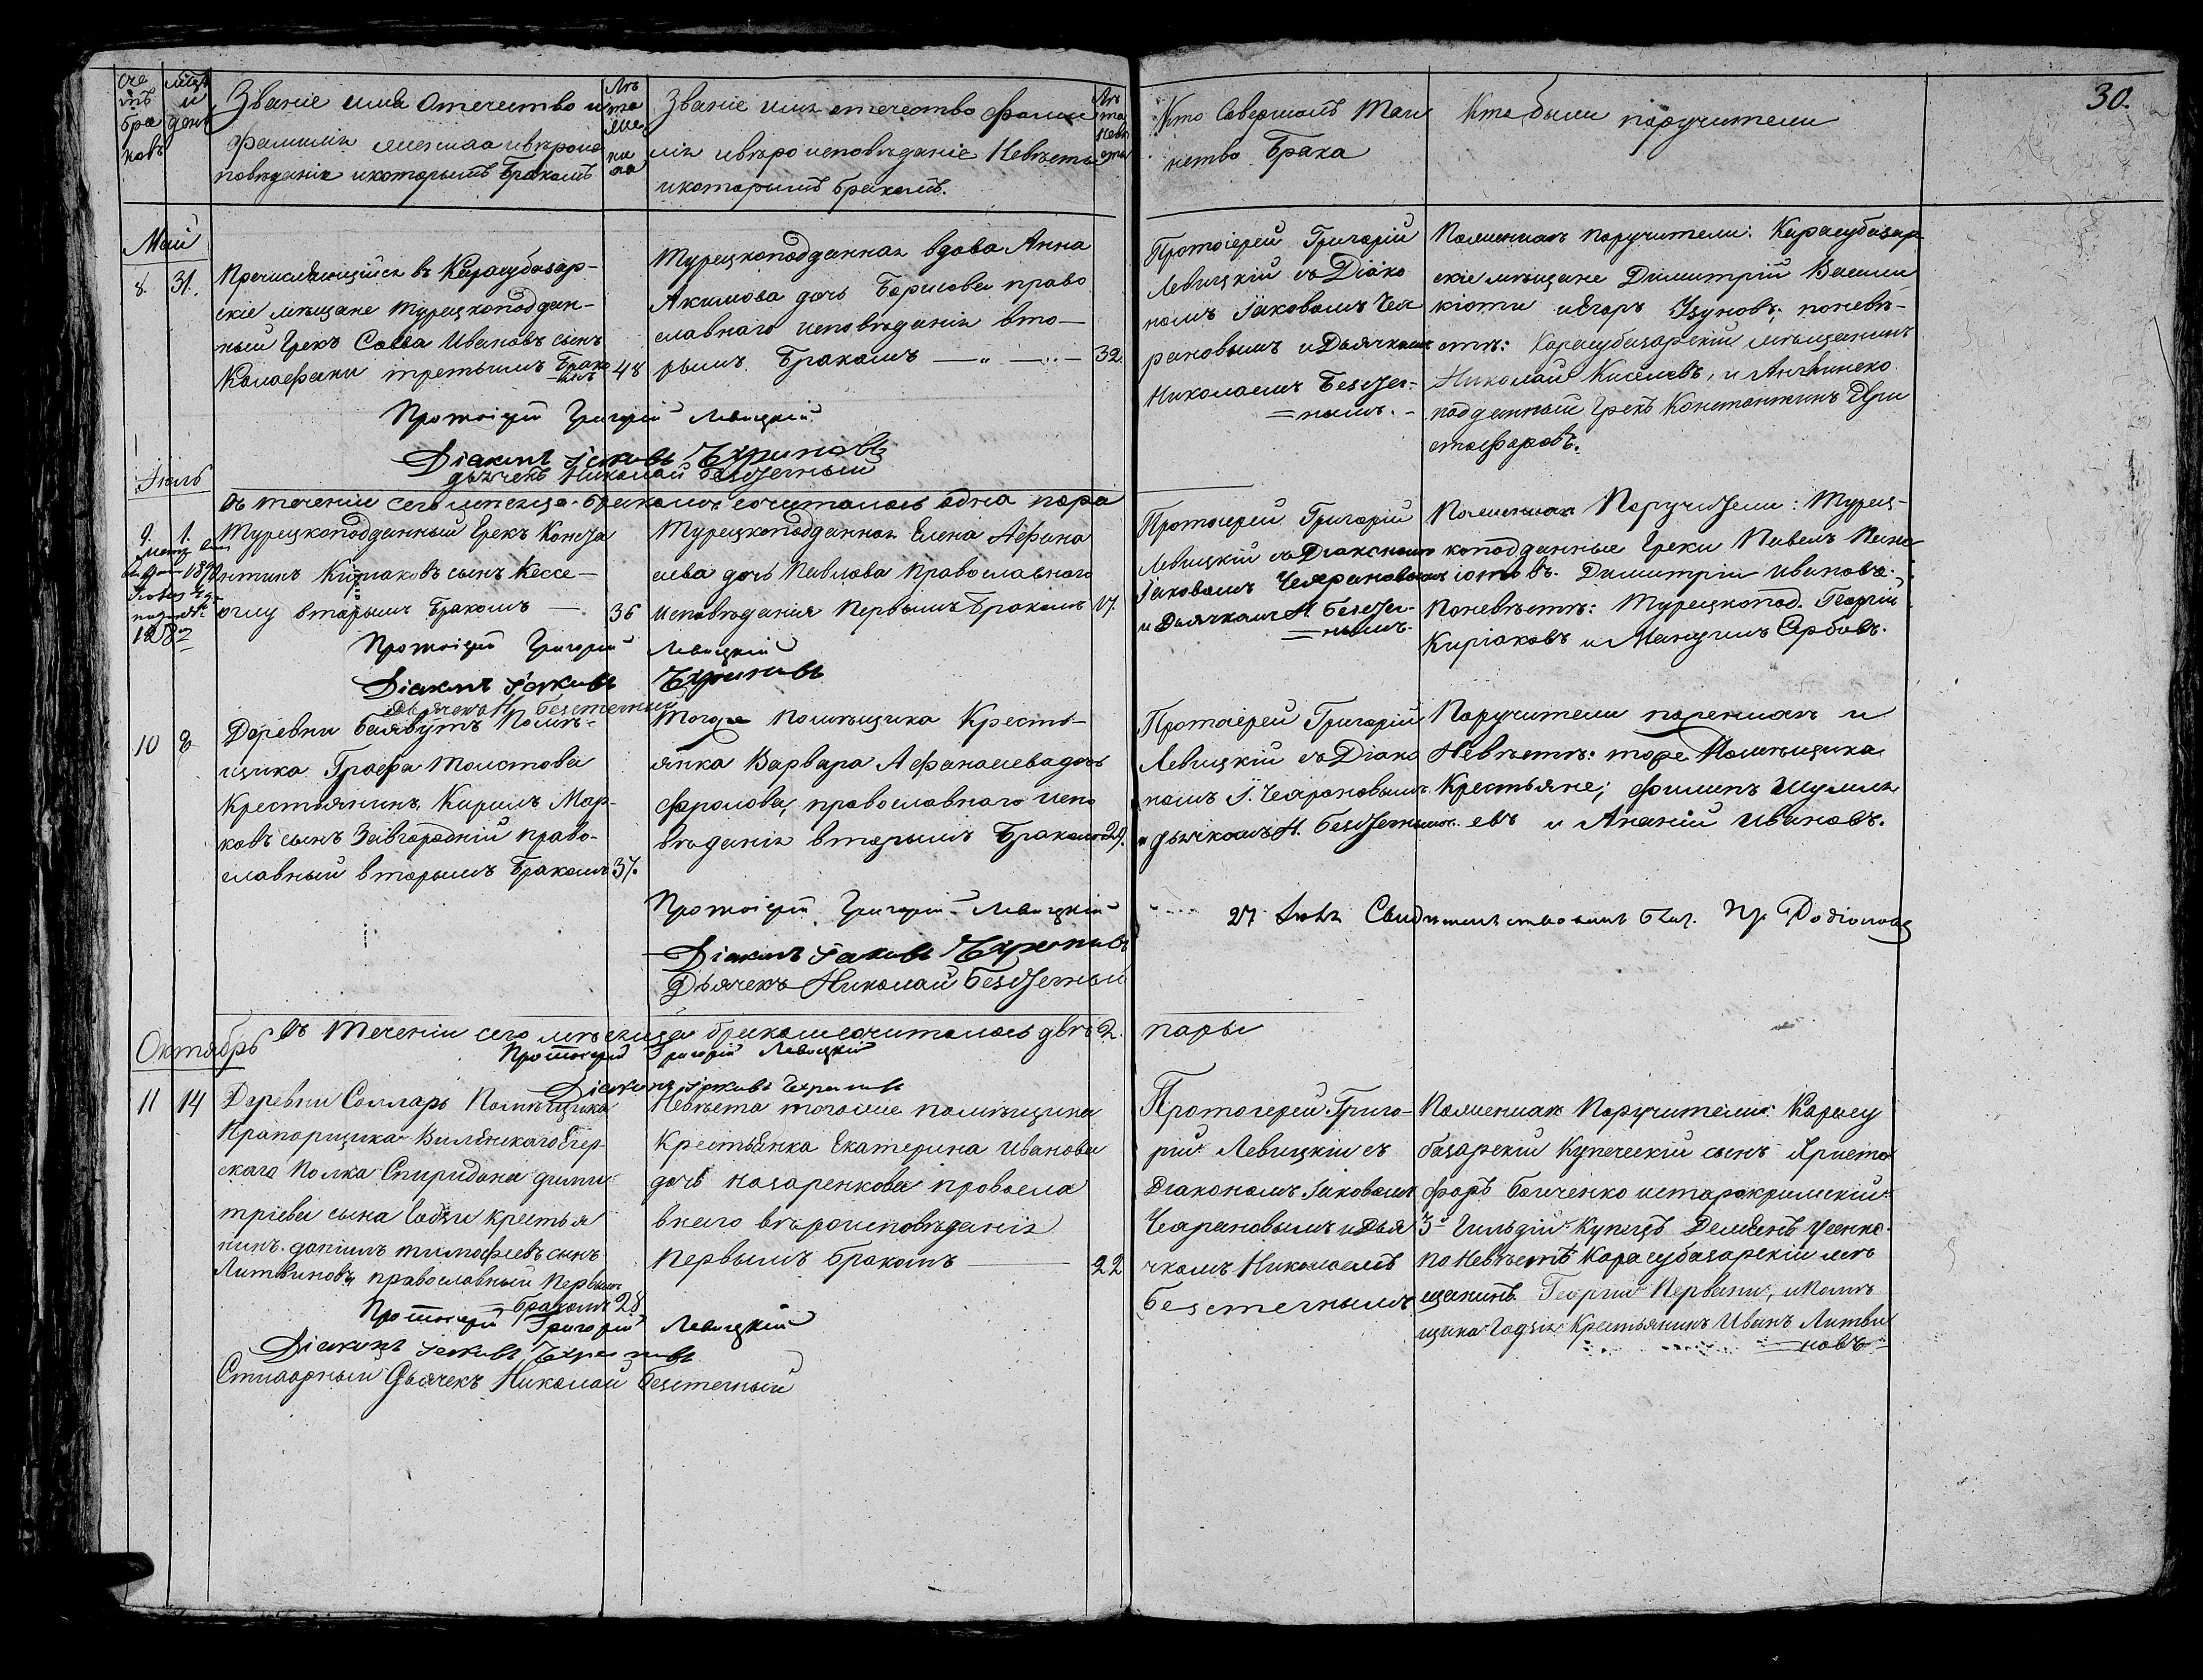 30.
Счетъ браковъ
Мѣсяцъ и день
Званіе имя Отечество и
фамилія жениха ивѣроис
повѣданіе икоторымъ бракомъ
Лѣта жениха
Званіе имя отечество фами
лія ивѣро исповѣданіе Невѣсты
икоторымъ бракомъ.
Лѣта невѣсты
Кто Совершалъ Таи
нство Брака
Кто были поручители
Май
8. 31.
Причисляющійся въ Карасубазар-
скіе мѣщане турецкоподдан-
ный Грекъ Савва Ивановъ сынъ
третьимъ Брако
=мъ 48
Турецкоподданная вдова Анна
Акимова дочь Борисова право
славнаго исповѣданія вто-
рымъ Бракомъ 32.
Протоіерей Григорій
Левицкій съ Діако
номъ Іаковомъ Чех
рановымъ и Дьячкомъ
Николаемъ Безсчет-
=нымъ.
Поженихѣ поручители: Карасубазар-
скіе мѣщане Димитрій Васили
кіоти и Егоръ Узуновъ; поневѣ-
стѣ: Карасубазарскій мѣщанинъ
Николай Киселевъ, и
подданный Грекъ Константинъ Хри
стофоровъ.
Протоіерей Григорій Левицкій
Діаконъ Іаковъ Чехрановъ
дьячекъ Николай Безсчетный
Іюль
Въ теченіи сего мѣсяца бракомъ сочиталась одна пара
9. 1.
Турецкоподданный Грекъ Конста
нтинъ Киріаковъ сынъ Кессе-
оглу вторымъ бракомъ 36
Турецкоподданная Елена Афана
сіева дочь Павлова Православнаго
исповѣданія Первымъ бракомъ 17.
Протоіерей Григорій
Левицкій съ Діакономъ
Іаковомъ Чехрановымъ
и Дьячкомъ Н. Безсчет-
=нымъ.
Поженихѣ Поручители: Турец-
коподданные Греки Павелъ
Димитрій Ивановъ.
Поневѣстѣ: Турецкопод. Георгій
Киріаковъ и Мануилъ Сербовъ.
Протоіерей Григорій Левицкій
Діаконъ Іаковъ Чехрановъ
Дьячекъ Н. Безсчетный
10 8
Деревни Баявутъ Помѣ-
щика Графа Толстова
Крестьянинъ Кирилъ Мар-
ковъ сынъ Завгородній право-
славный вторымъ бракомъ 37.
Тогоже помѣщика Кресть-
янка Варвара Афанасіева дочь
Фролова, православнаго испо
вѣданія вторымъ бракомъ 29.
Протоіерей Григорій
Левицкій съ Діако
номъ І. Чехрановымъ
и дьячкомъ Н. Безсчетнымъ
Поручители поженихѣ и
Невѣстѣ: тогоже Помѣщика
Крестьяне; Филипъ Шумил
евъ и Ананій Ивановъ.
Протоіерей Григорій Левицкій
Діаконъ Іаковъ Чехрановъ
Дьячекъ Николай Безсчетный
27 Свидѣтельствовалъ Бла. Пр. Родіоновъ
Въ теченіи сего мѣсяца бракомъ сочиталось двѣ 2. пары
Протоіерей Григорій Левицкій
Діаконъ Іаковъ Чехрановъ
Октябрь
11 14
Деревни Солларъ Помѣщика
Прапорщика Виленскаго Егер-
скаго Полка Спиридона Дими
тріева сына Годзи крестья
нинъ Даніилъ тимофеевъ сынъ
Литвиновъ православный Первымъ
=бракомъ 28
Невѣста тогоже помѣщика
Крестьянка Екатерина Иванова
дочь Назаренкова правосла
внаго вѣроисповѣданія
Первымъ бракомъ 22
Протоіерей Григо-
рій Левицкій съ
Діакономъ Іаковомъ
Чехрановымъ и Дья
чкомъ Николаемъ
Безсчетнымъ
Поженихѣ Поручители: Карасу
базарскій Купеческій сынъ Христо
форъ Баличенко истарокримскій
3й Гильдіи Купецъ Демянъ Усенко
по Невѣстѣ Карасубазарскій мѣ
щанинъ Георгій и Помѣ
щика Годзи Крестьянинъ Иванъ Литви
=новъ=
Протоіерей Григорій Левицкій
Діаконъ Іаковъ Чехрановъ
Стихарный Дьячекъ Николай Безсчетный